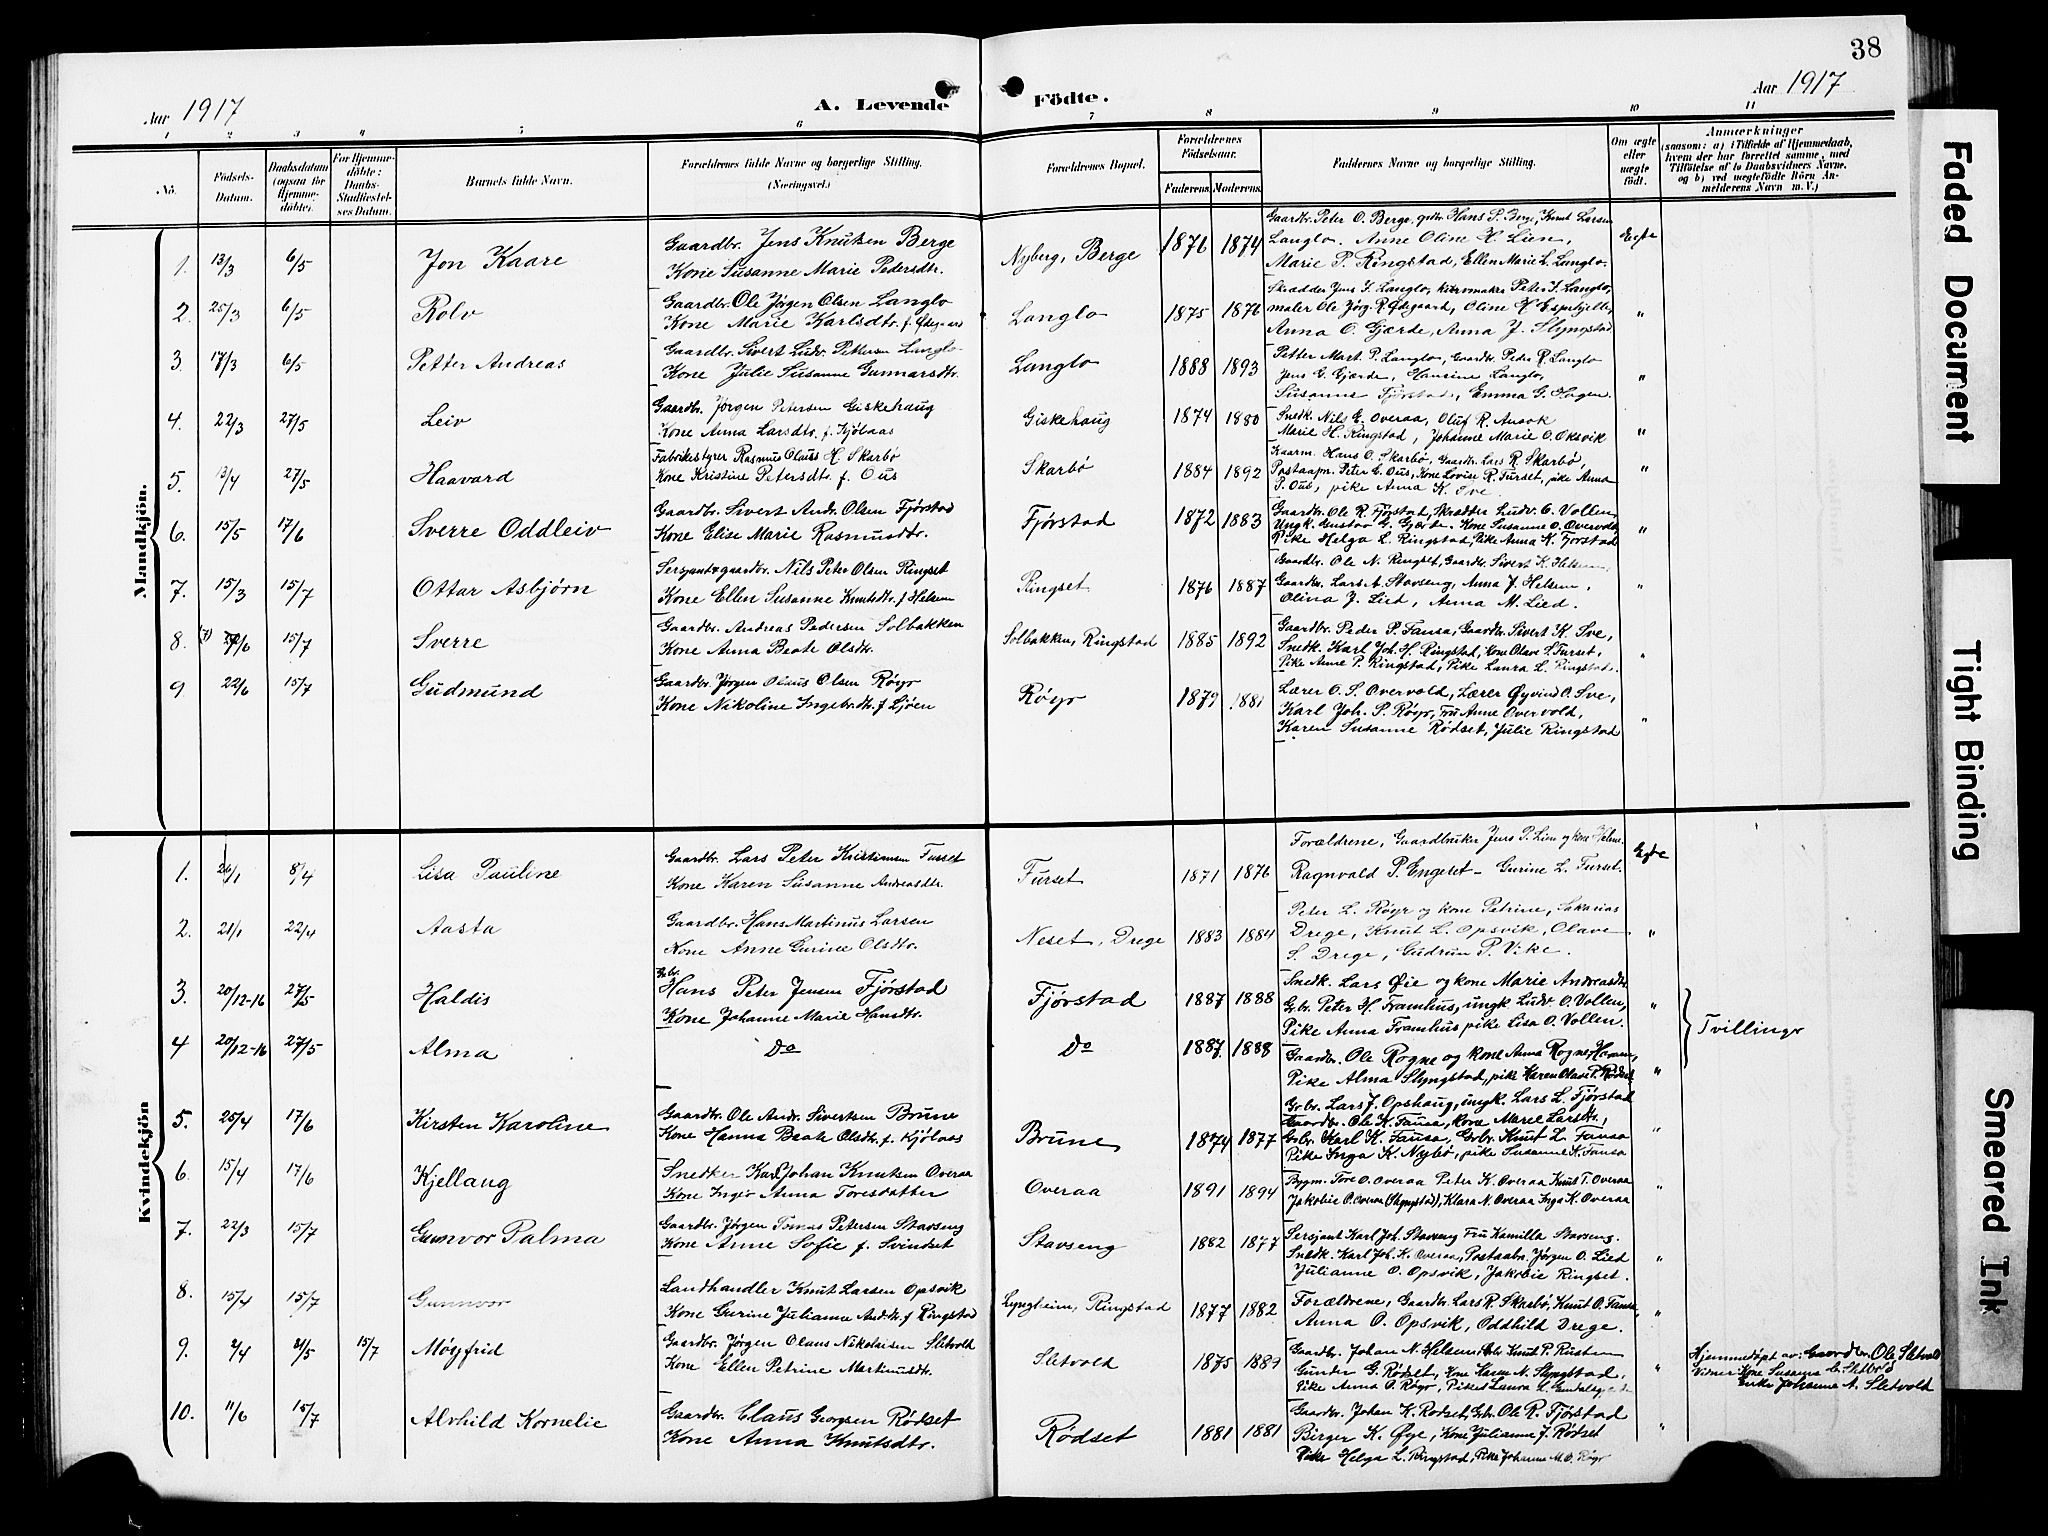 38
Aar 1917
A. Levende Födte.
Aar 1917
1 2 3 4 5 6 7 8 9 10 11
No.
Födsels-Datum.
Daabsdatum (ogsaa for Hjemme-döbte).
For Hjemme-döbte: Daabs-Stadfæstel-ses Datum.
Barnets fulde Navn.
Forældrenes fulde Navne og borgerlige Stilling. (Næringsvei.)
Forældrenes Bopæl.
Forældrenes Födselsaar.
Faderens. Moderens.
Faddernes Navne og borgerlige Stilling.
Om ægte eller uægte födt.
Anmærkninger (saasom: a) i Tilfælde af Hjemmedaab, hvem der har forrettet samme, med Tilföielse af to Daabsvidners Navne, og b) ved uægtefödte Börn An-melderens Navn m. V.)
Mandkjön.
1. 13/3 6/5 Jon Kaare
Gaardbr. Jens Knutsen Berge
Kone Susanne Marie Pedersdtr.
Nyberg, Berge 1876 1874
Gaardbr. Peter O. Berge, grdbr. Hans P. Berge, Knut Larsen
Langlo. Anne Oline H. Lien,
Marie P. Ringstad, Ellen Marie L. Langlo.
Egte
2. 25/3 6/5 Rolv
Gaardbr. Ole Jørgen Olsen Langlo
Kone Marie Karlsdtr. f. Ødegaard
Langlo 1875 1876
Skrædder Jens J. Langlo, Peter J. Langlo,
maler Ole Jørg. R. Ødegaard, Oline H. Espehjelle,
Anna O. Gjærde, Anna J. Slyngstad
"
3. 17/3 6/5 Petter Andreas
Gaardbr. Sivert Ludv. Pettersen Langlo
Kone Julie Susanne Gunnarsdtr.
Langlo 1888 1893
Petter Mart. P. Langlo, Gaardbr. Peder R. Langlo
Jens G. Gjærde, Hansine Langlo,
Susanne Fjørstad, Emma G. Hagen.
"
4. 22/3 27/5 Leiv
Gaardbr. Jørgen Petersen Giskehaug
Kone Anna Larsdtr. f. Kjølaas
Giskehaug 1874 1880
Snedk. Nils E. Overaa, Oluf R. Auook
Marie H. Ringstad, Johanne Marie O. Oksvik
"
5. 13/4 27/5 Haavard
Fabrikstyrer Rasmus Olaus H. Skarbø
Kone Kristine Petersdtr. f. Ous
Skarbø 1884 1892
Kaarm. Hans O. Skarbø, Gaardbr. Lars R. Skarbø,
Postaapn. Peter E. Ous, Kone Lovise R. Furset, pike Anna
P. Ous, pike Anna K. Sve.
"
6. 15/5 17/6 Sverre Oddleiv
Gaardbr. Sivert Andr. Olsen Fjørstad
Kone Elise Marie Rasmusdtr.
Fjørstad 1872 1883
Gaardbr. Ole R. Fjørstad, Skrædder Ludv. O. Vollen,
Ungk. Gustav G. Gjærde. Kone Susanne O. Overvold,
Pike Helga L. Ringstad, Pike Anna K. Fjørstad
"
7. 15/3 15/7 Ottar Asbjørn
Sersjant & gaardbr. Nils Peter Olsen Ringset
Kone Ellen Susanne Knutsdtr. f. Helsem
Ringset 1876 1887
Gaardbr. Ole N. Ringset, Gaardbr. Sivert K. Helsem,
Gaardbr. Lars A. Stavseng, Anna J. Helsem,
Olina J. Lied, Anna M. Lied.
"
8. (7) 7/6 15/7 Sverre
Gaardbr. Andreas Pedersen Solbakken
Kone Anna Beate Olsdtr.
Solbakken, Ringstad 1885 1892
Gaardbr. Peder P. Fausa, Gaardbr. Sivert K. Sve,
Snedk. Karl Joh. H. Ringstad, Kone Olave L. Furset,
Pike Anne P. Ringstad, Pike Laura L. Ringstad.
"
9 22/6 15/7 Gudmund
Gaardbr. Jørgen Olaus Olsen Røyr
Kone Nikoline Ingebr.dtr. f. Ljøen
Røyr 1879 1881
Lærer O. S. Overvold, Lærer Øyvind O. Sve,
Karl Joh. P. Røyr, Fru Anne Overvold,
Karen Susanne Rødset, Julie Ringstad
"
Kvindekjön
1. 26/1 8/4 Lisa Pauline
Gaardbr. Lars Peter Kristiansen Furset
Kone Karen Susanne Andreasdtr.
Furset 1871 1876
Forældrene, Gaardbruker Jens P. Lien og kone Helene
Ragnvald P. Engeset - Gurine L. Furset.
Egte
2. 21/1 22/4 Aasta
Gaardbr. Hans Martinus Larsen
Kone Anne Gurine Olsdtr.
Neset, Drege 1883 1884
Peter L. Røyr og kone Petrine, Sakarias
Drege, Knut L. Opsvik, Olave
S. Drege, Gudrun P. Vike.
"
3. 20/12-16 27/5 Haldis
Grbr. Hans Peter Jensen Fjørstad
Kone Johanne Marie Hansdtr.
Fjørstad 1887 1888
Snedk. Lars Øie og kone Marie Andreasdtr.
Grbr. Peter H. Framhus, ungk. Ludv. O. Vollen,
Pike Anna Framhus pike Lisa O. Vollen.
"
Tvillinger
4 20/12-16 27/5 Alma
Do
Do 1887 1888
Gaardbr. Ole Rogne og kone Anna Rogne, Hamm,
Pike Alma Slyngstad, pike Karen Olave P. Rødset
Grbr. Lars J. Opshaug, ungk. Lars L. Fjørstad
"
5. 25/4 17/6 Kirsten Karoline
Gaardbr. Ole Andr. Sivertsen Brune
Kone Hanna Beate Olsdtr. f. Kjølaas
Brune 1874 1877
Gaardbr. Ole K. Fausa, kone Marie Larsdtr.,
Grbr. Karl K. Fausa, Grbr. Knut L. Fausa
Pike Inga K. Nybø, pike Susanne K. Fausa
"
6 15/4 17/6 Kjellaug
Snedker Karl Johan Knutsen Overaa
Kone Inger Anna Toresdatter
Overaa 1891 1894
Bygm. Tore O. Overaa Peter K. Overaa Knut T. Overaa
Jakobie O. Overaa (Slyngstad), Klara N. Overaa Inga K. Overaa
"
7. 22/3 15/7 Gunnvor Palma
Gaardbr. Jørgen Tomas Petersen Stavseng
Kone Anne Sofie f. Svindset
Stavseng 1882 1877
Sersjant Karl Joh. Stavseng Fru Kamilla Stavseng.
Snedk. Karl Joh. K. Overaa, Postaabn. Jørgen O. Lied
Julianne O. Opsvik, Jakobie Ringset.
"
8. 15/4 15/7 Gunnvor
Landhandler Knut Larsen Opsvik
Kone Gurine Julianne And.dtr. f. Ringstad
Lyngheim, Ringstad 1877 1882
Forældrene, Gaardbr. Lars R. Skarbø, Knut O. Fausa
Anna O. Opsvik, Oddhild Drege.
"
9. 2/4 21/5 15/7 Møyfrid
Gaardbr. Jørgen Olaus Nikolaisen Sletvold
Kone Ellen Petrine Martinusdtr.
Sletvold 1875 1889
Gaardbr. Johan N. Helsem Grbr. Knut P. Rusten
Gunder G. Rødset, Kone Karen N. Slyngstad,
Pike Anna O. Røyr, Pike Laura L.
"
Hjemmedøpt av: Gaardbr. Ole Sletvold
Vidner: Kone Susanna E. Sletvold
Enke Johanne A. Sletvold
10. 11/6 15/7 Alvhild Kornelie
Gaardbr. Elaus Georgsen Rødset
Kone Anna Knutsdtr.
Rødset 1881 1881
Gaardbr. Johan K. Rødset, Grbr. Ole R. Fjørstad
Birger K. Øye, Kone Julianne J. Rødset
Pike Helga L. Ringstad, Pike Johanne M. O. Røyr
"
Faded Document
Tight Binding
Smeared Ink